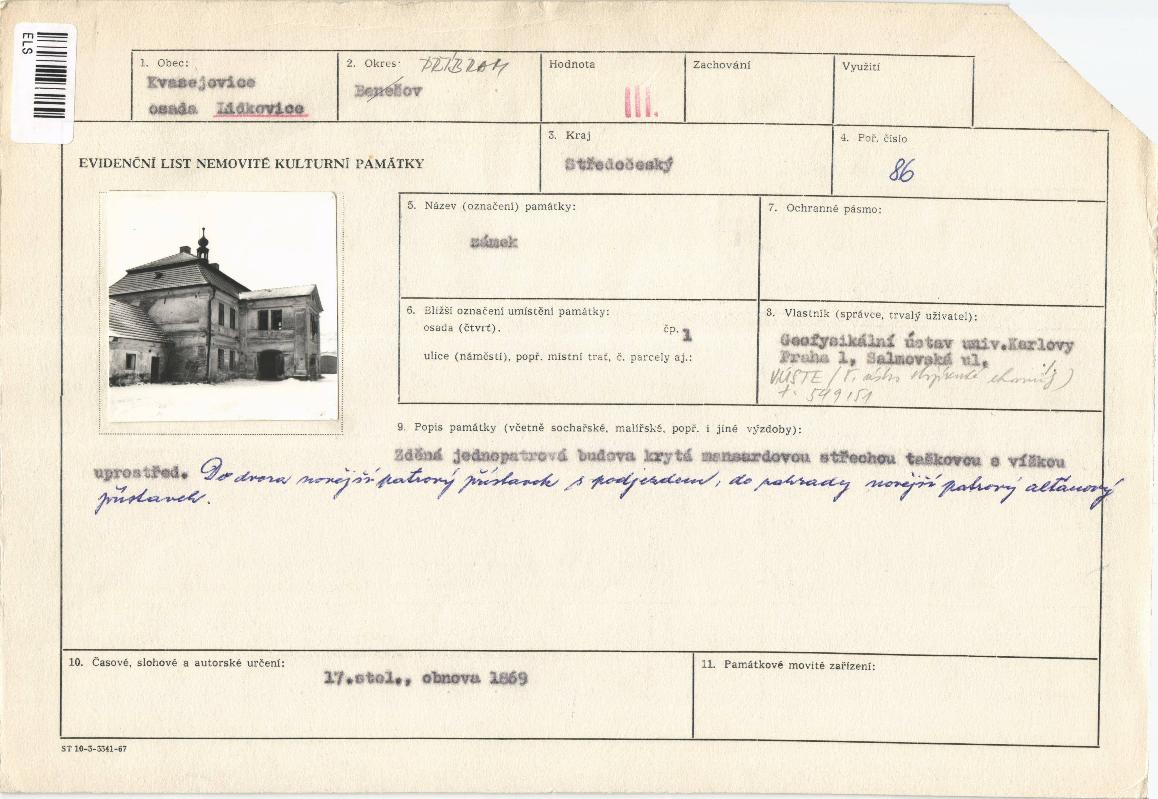 ELS
1. Obec:
Kvasejovice
osada Lidkovice
2. Okres: PŘÍBRAM
Benešov
Hodnota
III.
Zachování
Využití
EVIDENČNÍ LIST NEMOVITÉ KULTURNÍ PAMÁTKY
3. Kraj
Středočeský
4. Poř. číslo
86
5. Název (označení) památky:
zámek
7. Ochranné pásmo:
6. Bližší označení umístění památky:
osada (čtvrť).
čp. 1
ulice (náměstí), popř. místní trať, č. parcely aj.:
8. Vlastník (správce, trvalý uživatel):
Geofysikální ústav univ.Karlovy
Praha 1, Salmovská ul.
VÚSTE
t. 549151
9. Popis památky (včetně sochařské, malířské, popř. i jiné výzdoby):
Zděná jednopatrová budova krytá mansardovou střechou taškovou s vížkou
uprostřed. Do dvora novější patrový přístavek s podjezdem, do zahrady novější patrový altánový
přístavek.
10. Časové, slohové a autorské určení:
17.stol., obnova 1869
11. Památkové movité zařízení:
ST 10-3-3341-67